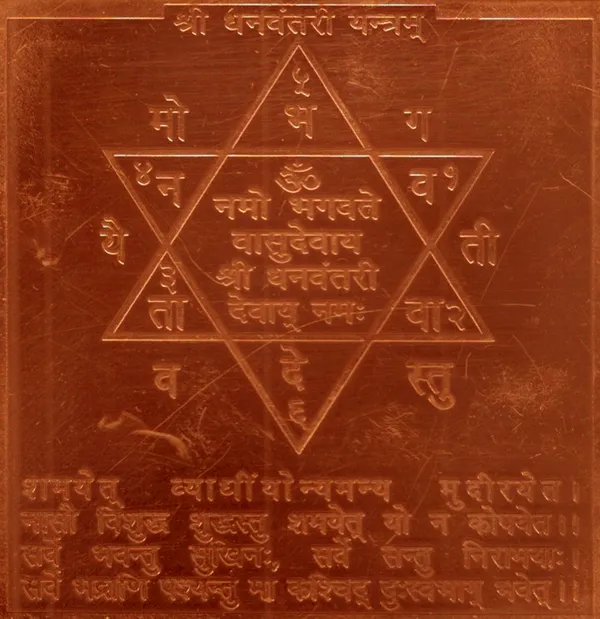 श्री धनवंतरी यन्त्रम्
५
मो भ ग
४ न ॐ व १
नमो भगवते
यै वासुदेवाय ती
३ श्री धनवंतरी
ता देवाय् नमः वा २
व दे स्तु
६
शमयेत् व्याधींयोन्यमन्य मुदीरयेत।
नासौ विशुद्ध शुद्धस्तु शमयेत् यो न कोपयेत।।
सर्वे भवन्तु सुखिनः, सर्वे सन्तु निरामयाः।
सर्वे भद्राणि पश्यन्तु मा कश्चिद् दुःखभाग् भवेत्।।